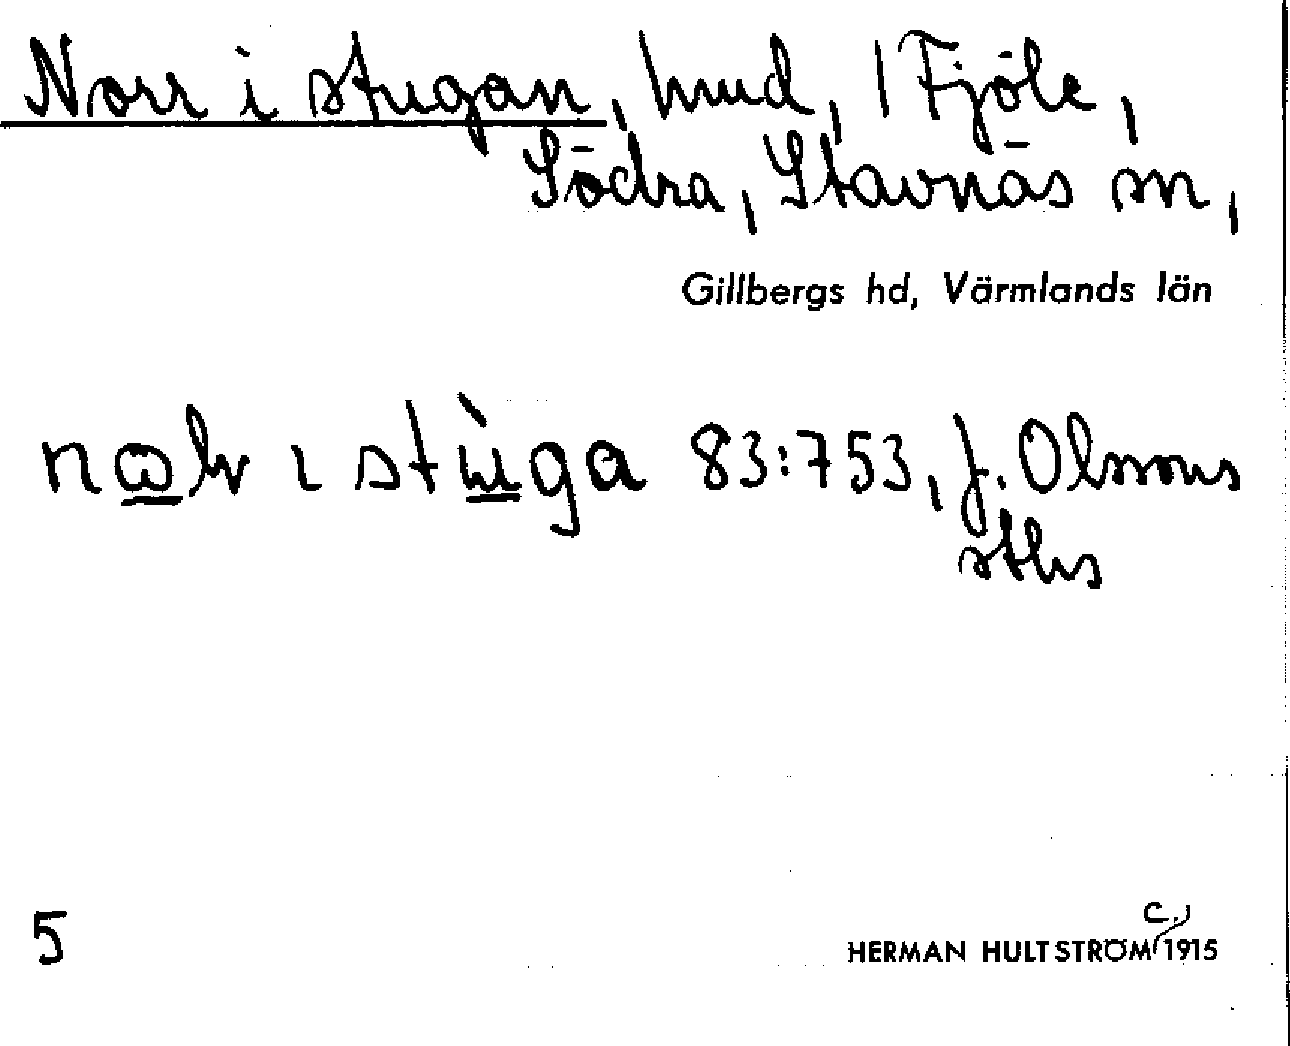 Norr i stugan, hmd, 1 Fjöle,
Södra, Stavnäs sn,
Gillbergs hd, Värmlands län
i stùga 83:753, J. Olssons
sthus
5
c.
HERMAN HULTSTRÖM 1915